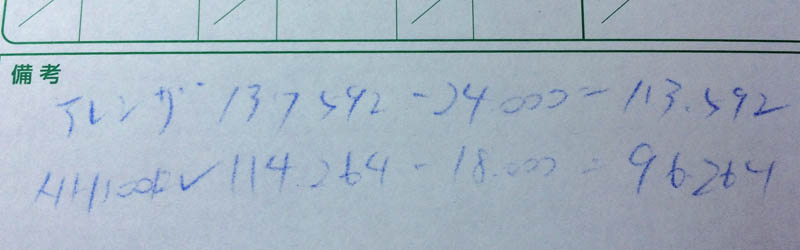 備考
アレンザ 137592 - 24.000 = 113.592
114.264 - 18.000 = 96.264